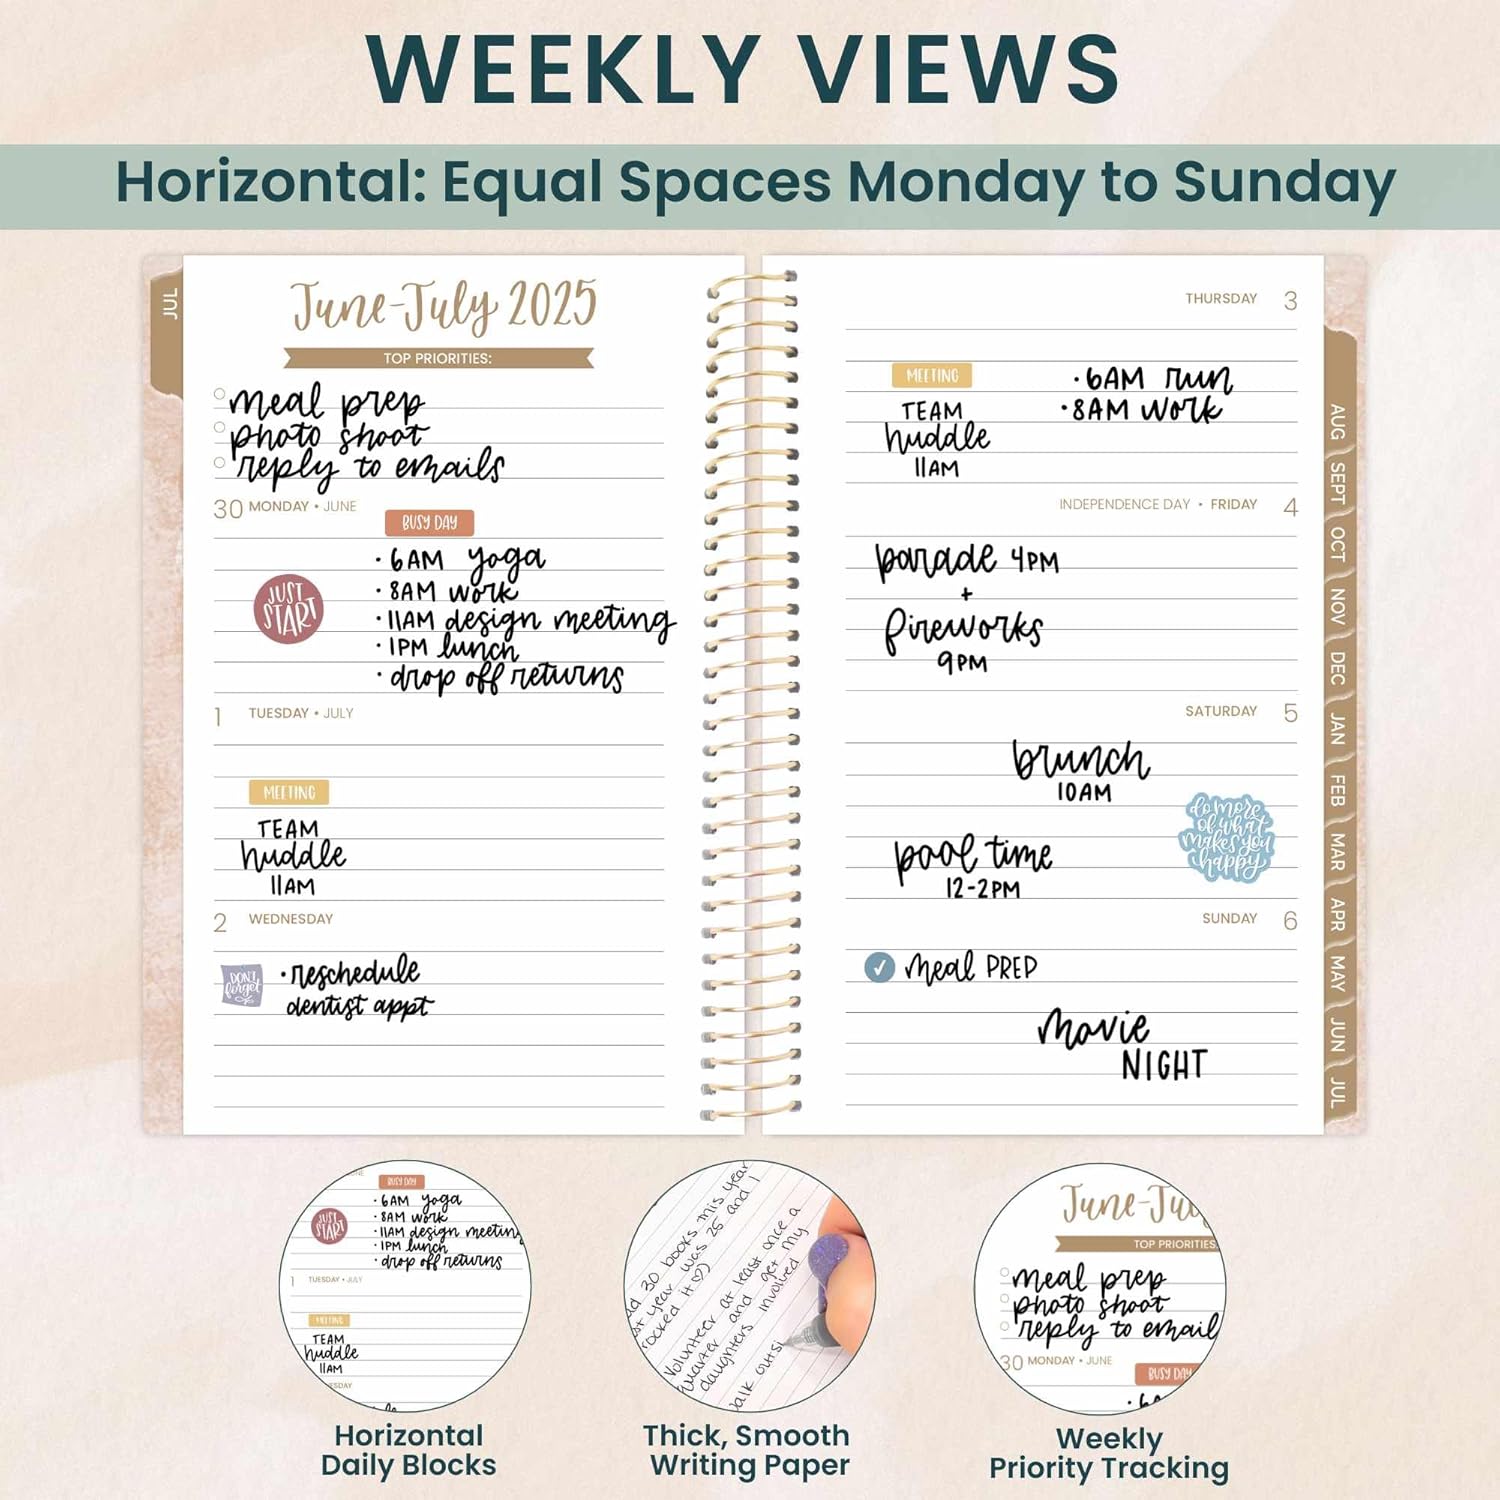 WEEKLY VIEWS
Horizontal: Equal Spaces Monday to Sunday
JUL
June-July 2025
TOP PRIORITIES:
meal prep
photo shoot
reply to emails
30 MONDAY • JUNE
BUSY DAY
JUST
START
• 6AM yoga
• 8AM work
• 11AM design meeting
• 1PM lunch
• drop off returns
1 TUESDAY • JULY
MEETING
TEAM
huddle
11AM
2 WEDNESDAY
DON'T
forget
• reschedule
dentist appt
THURSDAY 3
MEETING
TEAM
huddle
11AM
• 6AM run
• 8AM work
INDEPENDENCE DAY • FRIDAY 4
parade 4PM
+
fireworks
9PM
SATURDAY 5
brunch
10AM
do more
of what
makes you
happy
pool time
12-2PM
SUNDAY 6
meal PREP
movie
NIGHT
AUG
SEPT
OCT
NOV
DEC
JAN
FEB
MAR
APR
MAY
JUN
JUL
BUSY DAY
JUST
START
• 6AM yoga
• 8AM work
• 11AM design meeting
• 1PM lunch
• drop off returns
1 TUESDAY • JULY
MEETING
TEAM
huddle
11AM
Horizontal
Daily Blocks
30 books this year
year was 25 and I
rocked it ♡)
Volunteer at least once a
quarter and get my
daughters involved
Thick, Smooth
Writing Paper
June-Ju
TOP PRIORITIES:
meal prep
photo shoot
reply to email
30 MONDAY • JUNE
BUSY DAY
Weekly
Priority Tracking